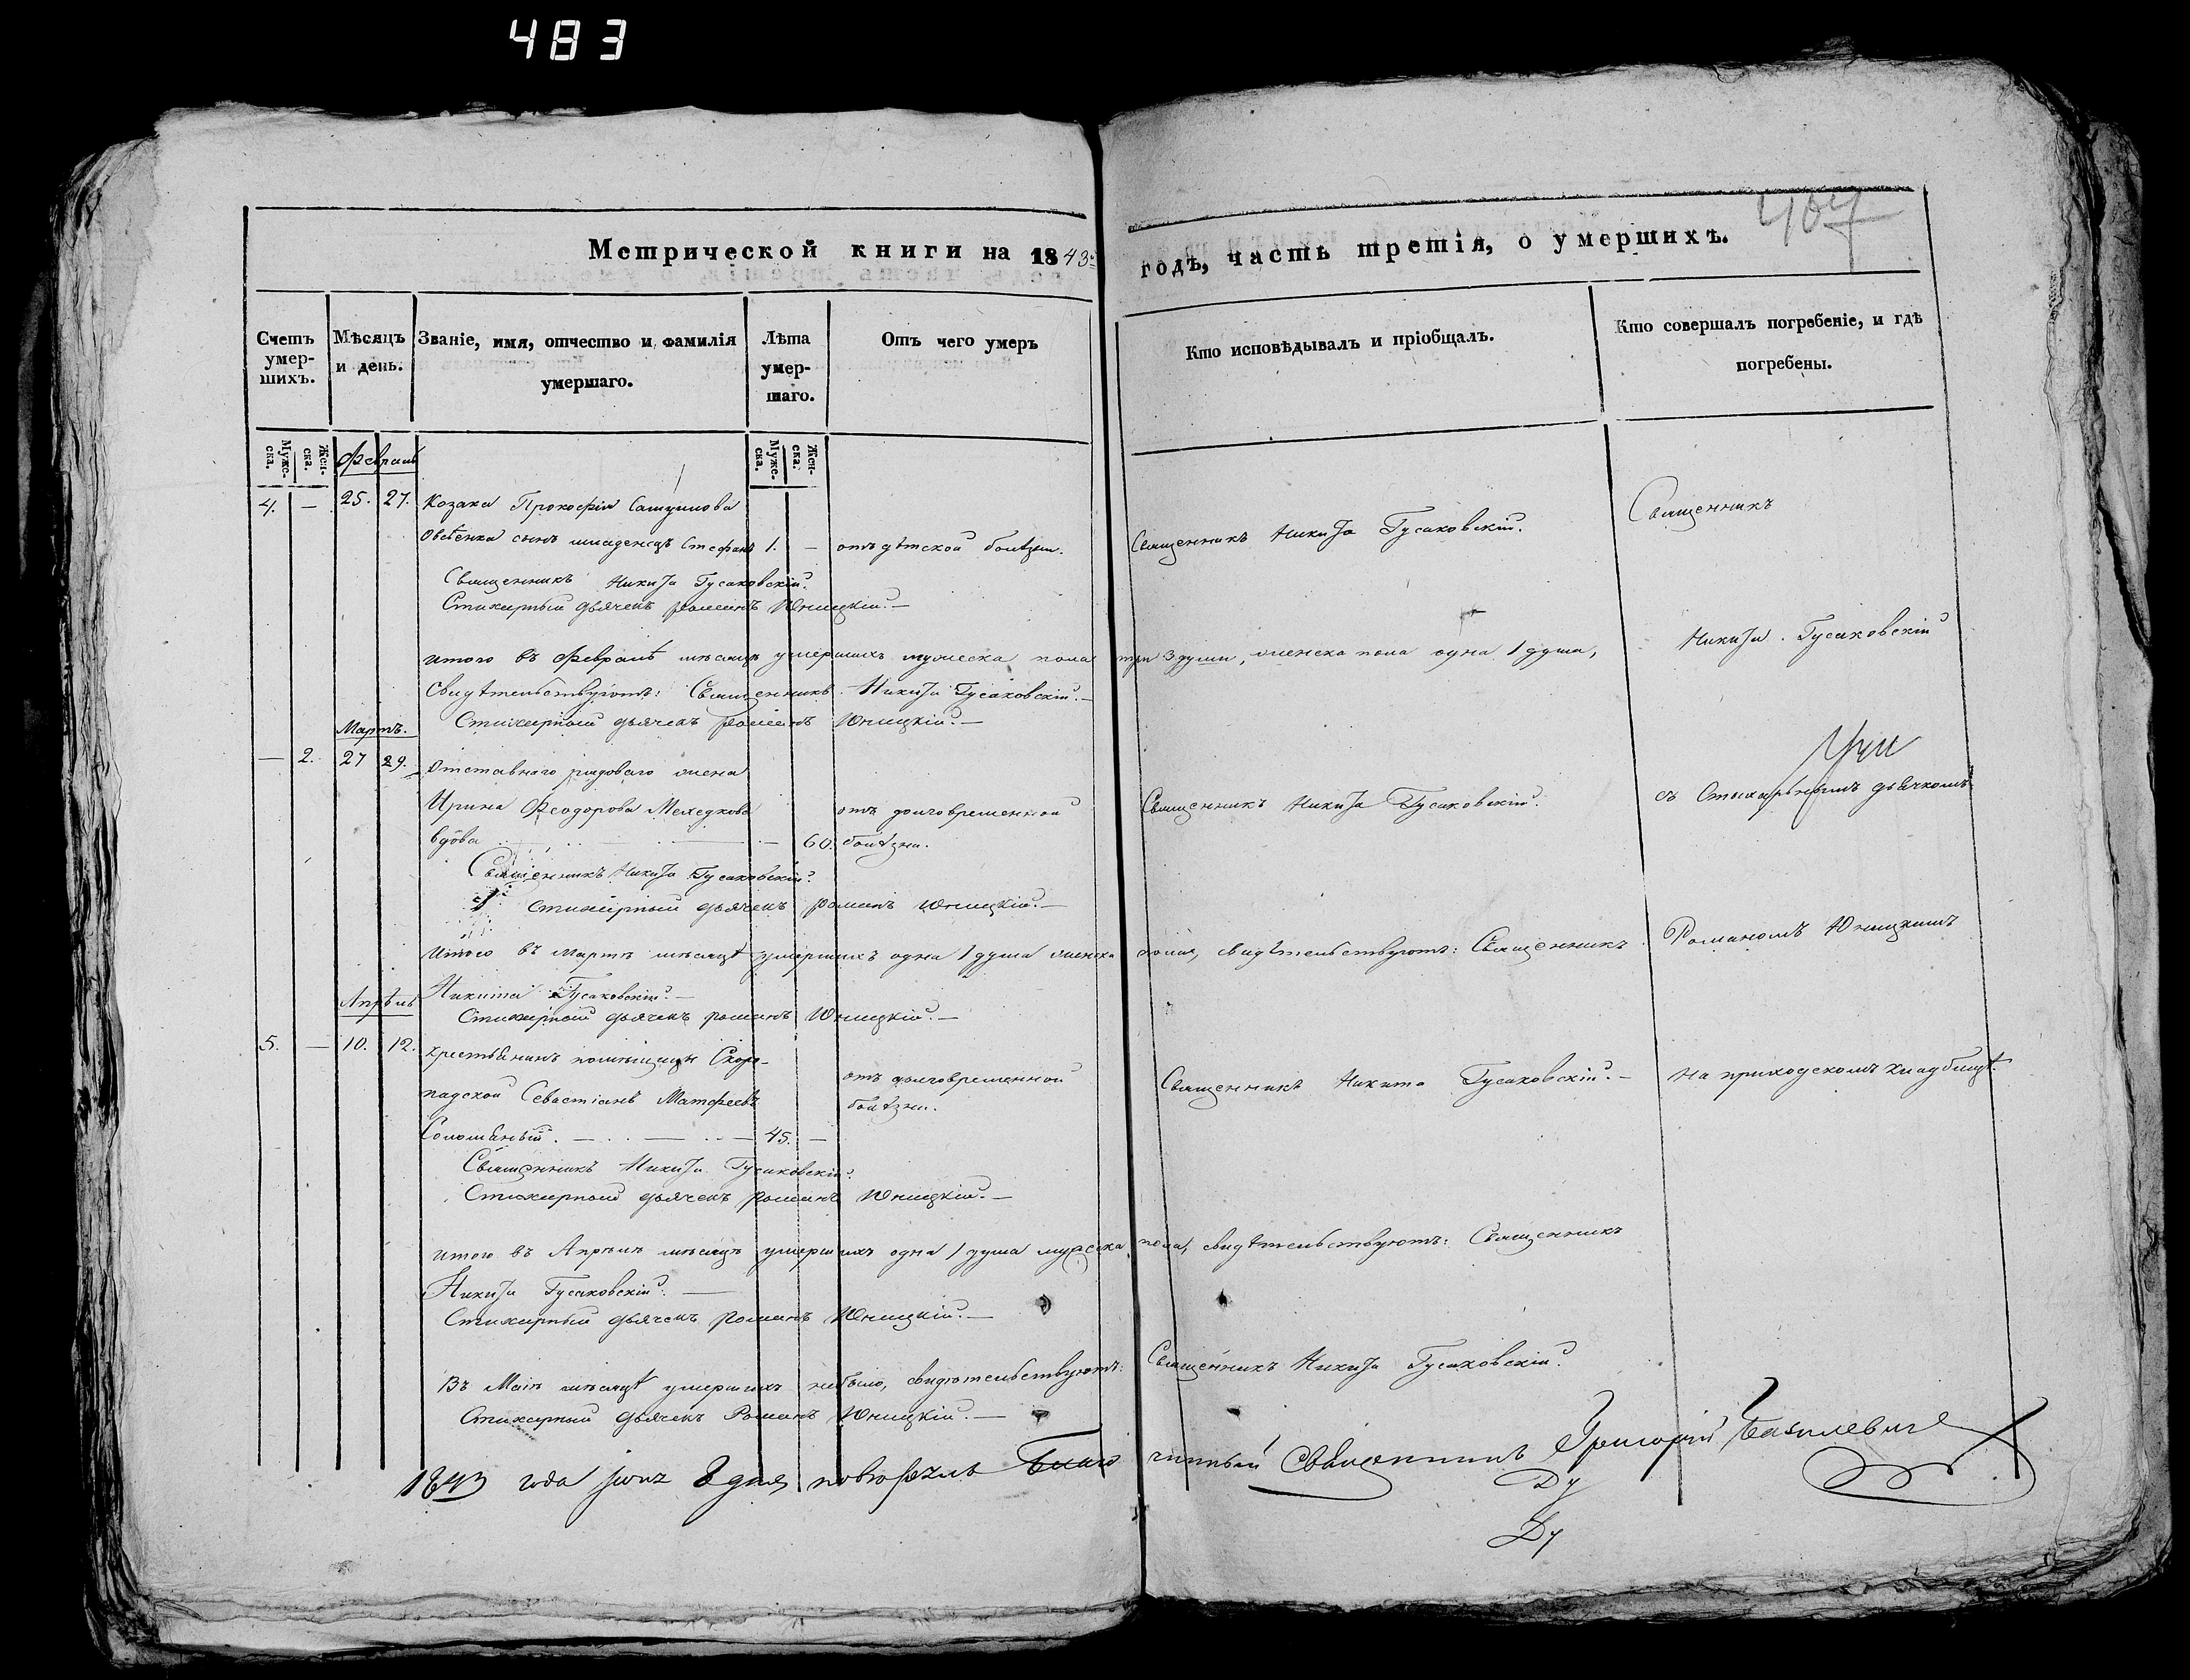 483
467
Метрической книги на 1843й годъ, часть третія, о умершихъ.
Счетъ умер-шихъ.
Мѣсяцъ и день.
Званіе, имя, отчество и фамилія умершаго.
Лѣта умер-шаго.
Отъ чего умеръ
Кто исповѣдывалъ и пріобщалъ.
Кто совершалъ погребеніе, и гдѣ погребены.
Муже-ска.
Жен-ска.
Муже-ска.
Жен-ска.
Февраль
4. — 25. 27. Козака Прокофія
Овсѣенка сынъ младенецъ Стефанъ 1. — отъ дѣтской болѣзни. Священникъ Никита Гусаковскій. Священникъ
Священникъ Никита Гусаковскій.
Стихарный дьячекъ Романъ Юницкій.—
итого въ Февралѣ мѣсяцѣ умершихъ мужеска пола три 3 души, женска пола одна 1 душа, Никита Гусаковскій
Свидѣтельствуютъ: Священникъ Никита Гусаковскій.—
Стихарный дьячекъ Романъ Юницкій.—
Мартъ.
— 2. 27 29. Отставнаго рядоваго жена
Ирина Феодорова отъ долговременной Священникъ Никита Гусаковскій. съ Стихарнымъ дьячкомъ
вдова — 60. болѣзни.
Священникъ Никита Гусаковскій.
Стихарный дьячекъ Романъ Юницкій.—
Итого въ Мартѣ мѣсяцѣ умершихъ одна 1 душа женска пола, свидѣтельствуютъ: Священникъ Романомъ Юницкимъ
Никита Гусаковскій.—
Апрѣль
Стихарный дьячекъ Романъ Юницкій.—
5. — 10. 12. Крестьянинъ помѣщицы Скоро-
падской Севастіанъ Матфеевъ отъ долговременной болѣзни. Священникъ Никита Гусаковскій.— на приходскомъ кладбищѣ.
Соломяный. — 45. —
Священникъ Никита Гусаковскій.
Стихарный дьячекъ Романъ Юницкій.—
итого въ Апрѣлѣ мѣсяцѣ умершихъ одна 1 душа мужеска пола, свидѣтельствуютъ: Священникъ
Никита Гусаковскій.—
Стихарный дьячекъ Романъ Юницкій.—
Въ Маіѣ мѣсяцѣ умершихъ небыло, свидѣтельствуютъ: Священникъ Никита Гусаковскій.
Стихарный дьячекъ Романъ Юницкій.—
1843 года 8 дня Благочинный Священникъ Григорій Базилевичъ